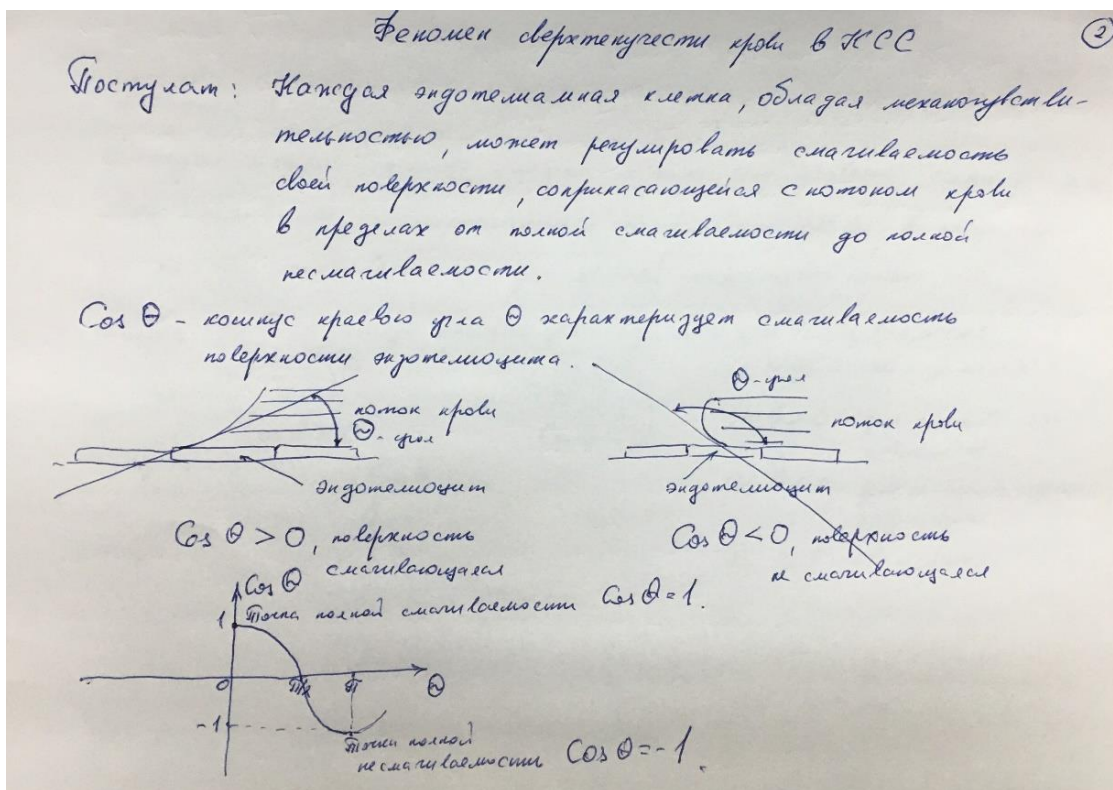 Феномен сверхтекучести крови в КСС
2
Постулат: Каждая эндотелиальная клетка, обладая механочувстви-
тельностью, может регулировать смачиваемость
своей поверхности, соприкасающейся с потоком крови
в пределах от полной смачиваемости до полной
несмачиваемости.
Cos Θ - косинус краевого угла Θ характеризует смачиваемость
поверхности эндотелиоцита.
поток крови
Θ-угол
эндотелиоцит
Cos Θ > 0, поверхность
смачивающаяся
Θ-угол
поток крови
эндотелиоцит
Cos Θ < 0, поверхность
не смачивающаяся
Cos Θ
1
Точка полной смачиваемости Cos Θ = 1.
0 π/2 π Θ
-1
Точка полной
несмачиваемости Cos Θ = -1.